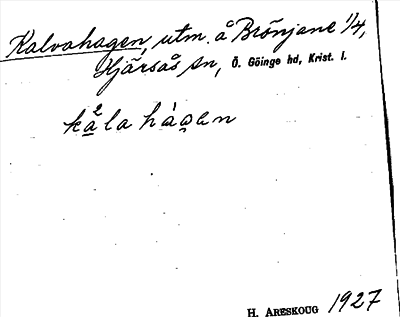 Kalvahagen, utm. å Brönjane 1/4,
Hjärsås sn, Ö. Göinge hd, Krist. l.
kå²la hàgen
H. ARESKOUG 1927